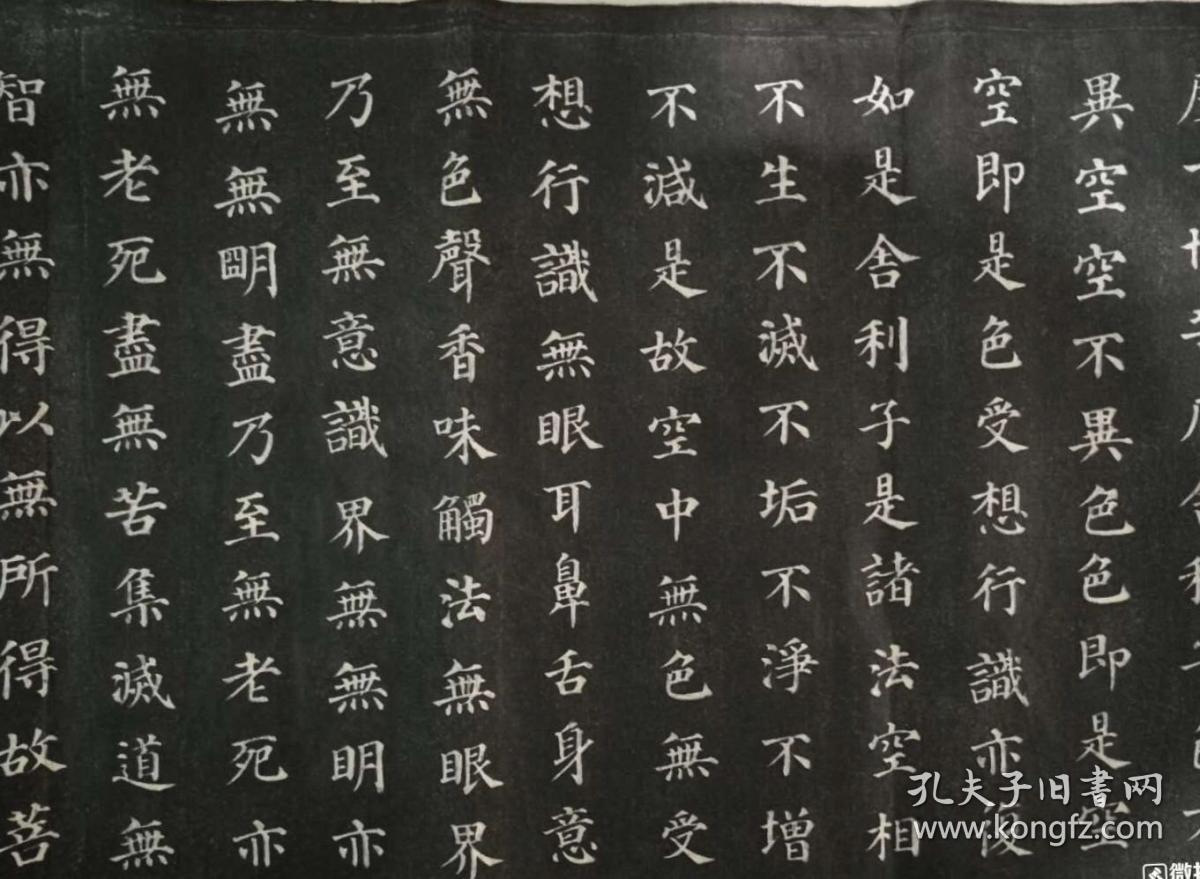 異空空不異色色即是空
空即是色受想行識亦復
如是舍利子是諸法空相
不生不滅不垢不淨不增
不減是故空中無色無受
想行識無眼耳鼻舌身意
無色聲香味觸法無眼界
乃至無意識界無無明亦
無無明盡乃至無老死亦
無老死盡無苦集滅道無
智亦無得以無所得故菩
孔夫子旧书网
www.kongfz.com